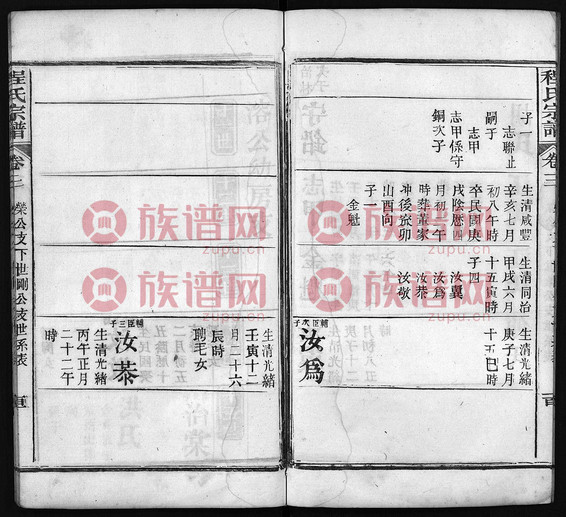 程氏宗譜
卷三
子一
志聯止
嗣于
志甲
志甲係守
銅次子
生清咸豐
辛亥七月
初八午時
卒民國庚
戌陰歷四
月初一午
時葬董家
沖後㝎卯
山酉向
子一
金魁
生清同治
甲戌六月
十五寅時
子四
汝翼
汝爲
汝恭
汝敬
生清光緒
庚子七月
十五巳時
輔臣次子
汝爲
生清光緒
壬寅十二
月二十六
辰時
聘毛女
輔臣三子
汝恭
生清光緒
丙午正月
二十二午
時
程氏宗譜
卷三
榮公支下世剛公支世系表
百
族谱网
zupu.cn
族谱网
zupu.cn
族谱网
zupu.cn
族谱网
zupu.cn